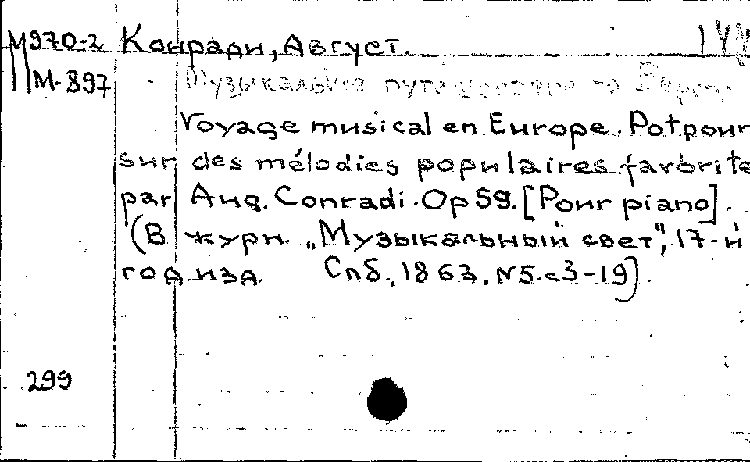 М970-2 Конради, Август.
М-897 Музыкальное путешествие по Европе
Voyage musical en Europe. Potpour
sur des mélodies populaires favorite
par Aug. Conradi. Op 59. [Pour piano].
(В журн. „Музыкальный свет", 17-й
год изд. Спб., 1863, №5. с3-19).
299